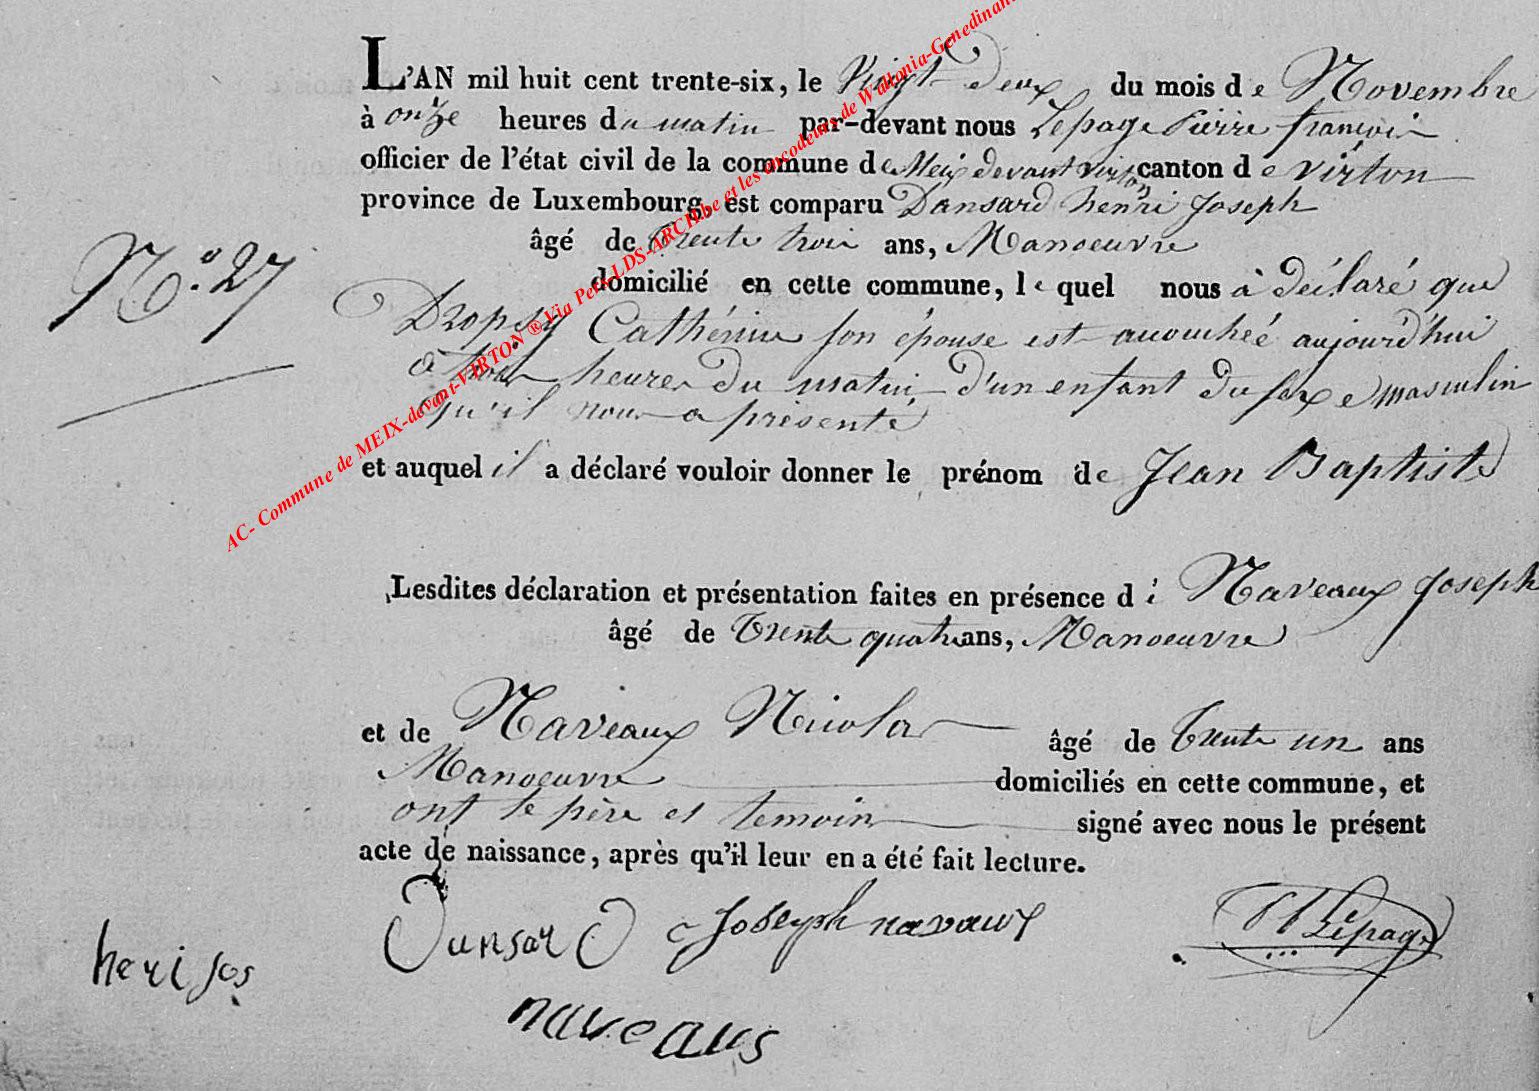 L'AN mil huit cent trente-six, le Vingt Deux du mois de Novembre
à onze heures du matin par-devant nous Lepage Pierre françois
officier de l'état civil de la commune de Meix devant virton canton de virton
province de Luxembourg, est comparu Dansard henri Joseph
âgé de Trente trois ans, Manoeuvre
N.º 27
domicilié en cette commune, le quel nous à déclaré que
Dropsy Cathérine son épouse est accouchéé aujourd'hui
à trois heures du matin d'un enfant du sexe masculin
qu'il nous a présenté
et auquel il a déclaré vouloir donner le prénom de Jean Baptiste
Lesdites déclaration et présentation faites en présence d Naveaux Joseph
âgé de Trente quatre ans, Manoeuvre
et de Naveaux Nicolas âgé de Trente un ans
Manoeuvre domiciliés en cette commune, et
ont le père et temoins signé avec nous le présent
acte de naissance, après qu'il leur en a été fait lecture.
Dansard Joseph navaux Lepage
heri jos
naveaus
AC- Commune de MEIX-devant-VIRTON ® Via Pers-LDS-ARCH.be et les encodeurs de Wallonia-Genedinant